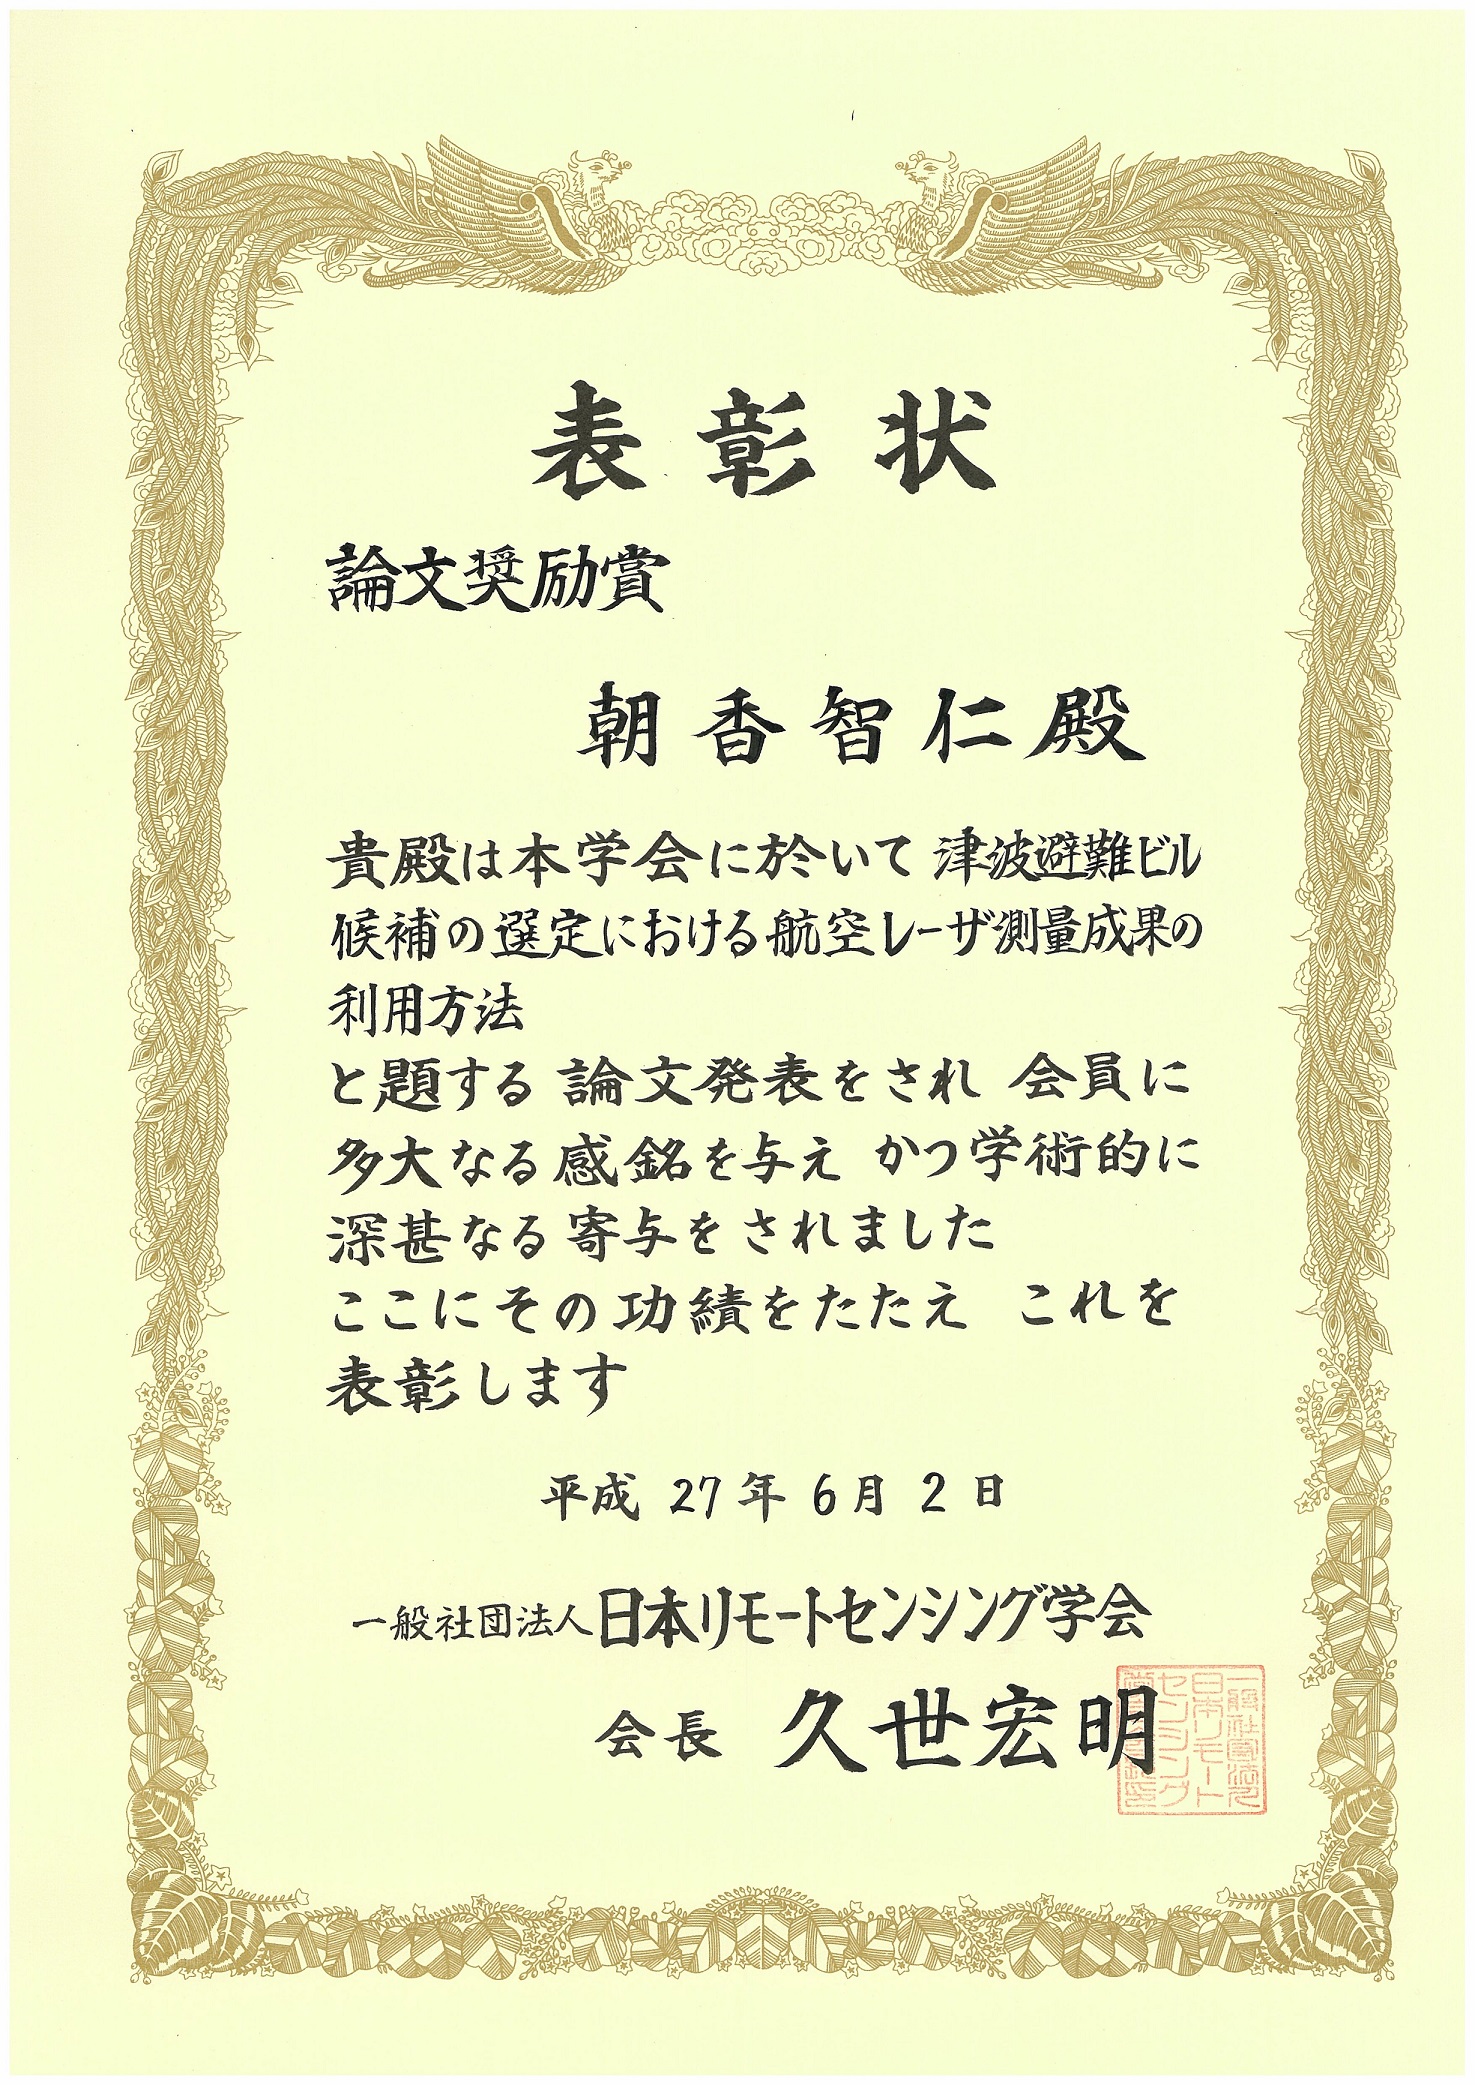 表彰状
論文奨励賞
朝香智仁殿
貴殿は本学会に於いて 津波避難ビル
候補の選定における航空レーザ測量成果の
利用方法
と題する 論文発表をされ 会員に
多大なる感銘を与え かつ学術的に
深甚なる寄与をされました
ここにその功績をたたえ これを
表彰します
平成 27 年 6 月 2 日
一般社団法人日本リモートセンシング学会
会長 久世宏明
一般社団法人
日本リモート
センシング